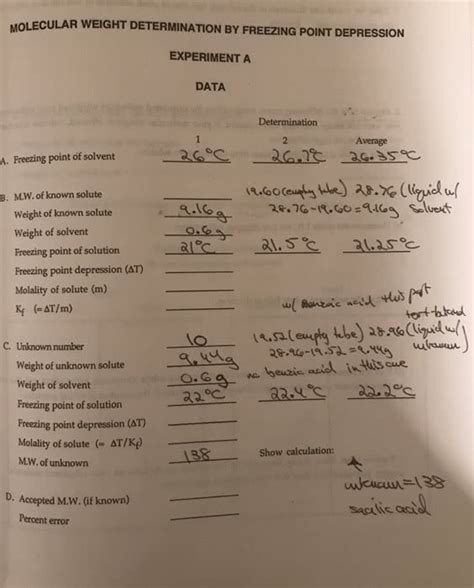 MOLECULAR WEIGHT DETERMINATION BY FREEZING POINT DEPRESSION
EXPERIMENT A
DATA
Determination
1 2 Average
A. Freezing point of solvent 26°C 26.7°C 26.35°C
B. M.W. of known solute 19.60 (empty tube) 28.76 (liquid w/
Weight of known solute 9.16g 28.76-19.60=9.16g solvent
Weight of solvent 0.6g
Freezing point of solution 21°C 21.5°C 21.25°C
Freezing point depression (ΔT)
Molality of solute (m)
Kf (=ΔT/m) w/ Benzoic acid this part
C. Unknown number 10 19.52 (empty tube) 28.96 (liquid w/
Weight of unknown solute 9.44g 28.96-19.52=9.44g unknown)
Weight of solvent 0.6g no benzic acid in this one
Freezing point of solution 22°C 22.4°C 22.2°C
Freezing point depression (ΔT)
Molality of solute (= ΔT/Kf)
M.W. of unknown 138 Show calculation:
unknown=138
D. Accepted M.W. (if known) acid
Percent error